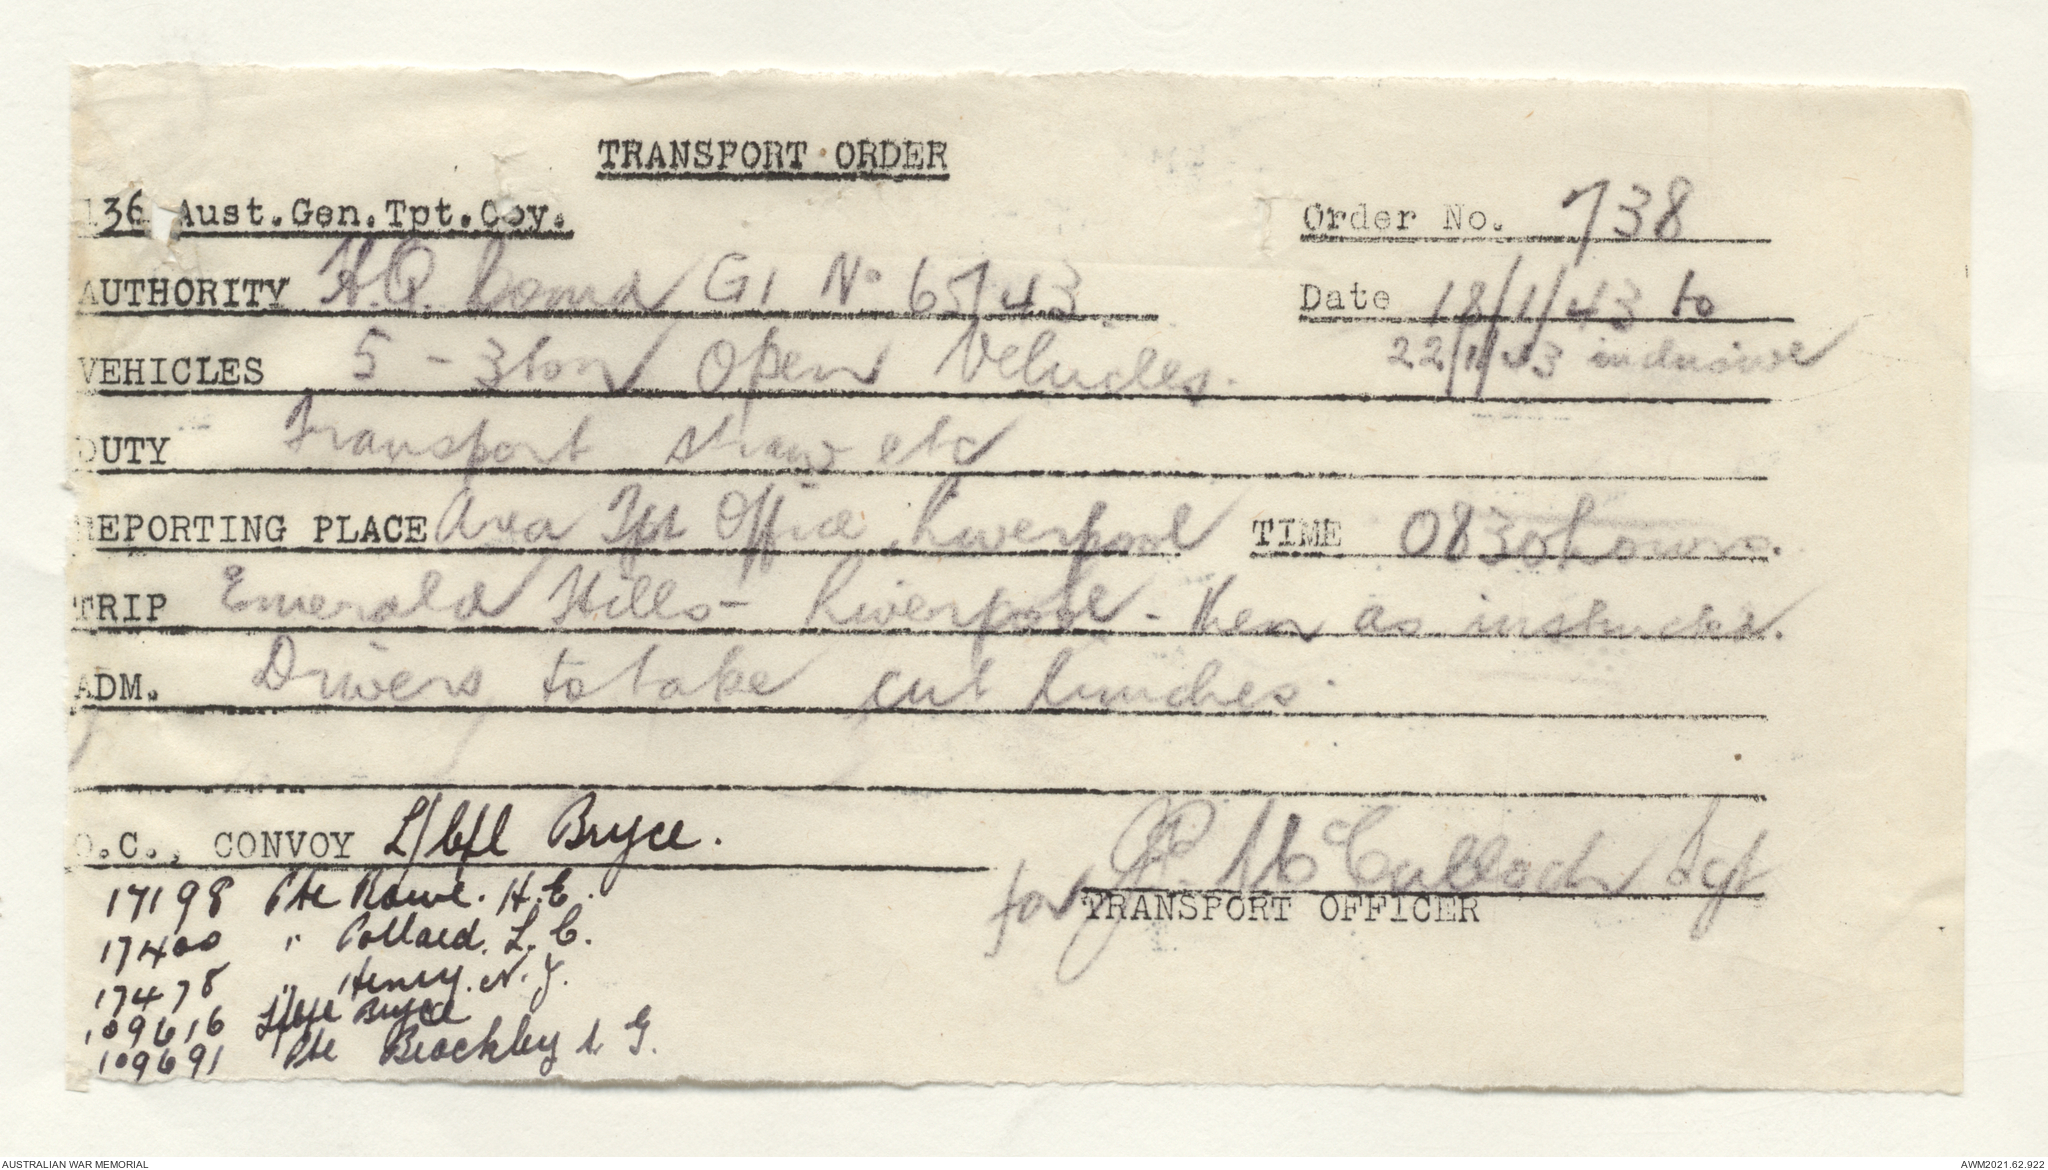 TRANSPORT ORDER
136 Aust.Gen.Tpt.Coy. Order No. 738
AUTHORITY H.Q. Comd G1 No 65/43 Date 18/1/43 to
VEHICLES 5 - 3 ton Open Vehicles. 22/1/43 inclusive
DUTY Transport straw etc
REPORTING PLACE Area Tpt Office, Liverpool TIME 0830 hours.
TRIP Emerald Hills - Liverpool - then as instructed.
ADM. Drivers to take cut lunches.
O.C., CONVOY L/Cpl Bryce.
for J.P. McCulloch Sgt
TRANSPORT OFFICER
17198 Pte Rowe. H.C.
17400 " Pollard. L.C.
17478 " Henry. N.J.
109616 L/Cpl Bryce
109691 Pte Brackley L G.
AUSTRALIAN WAR MEMORIAL AWM2021.62.922